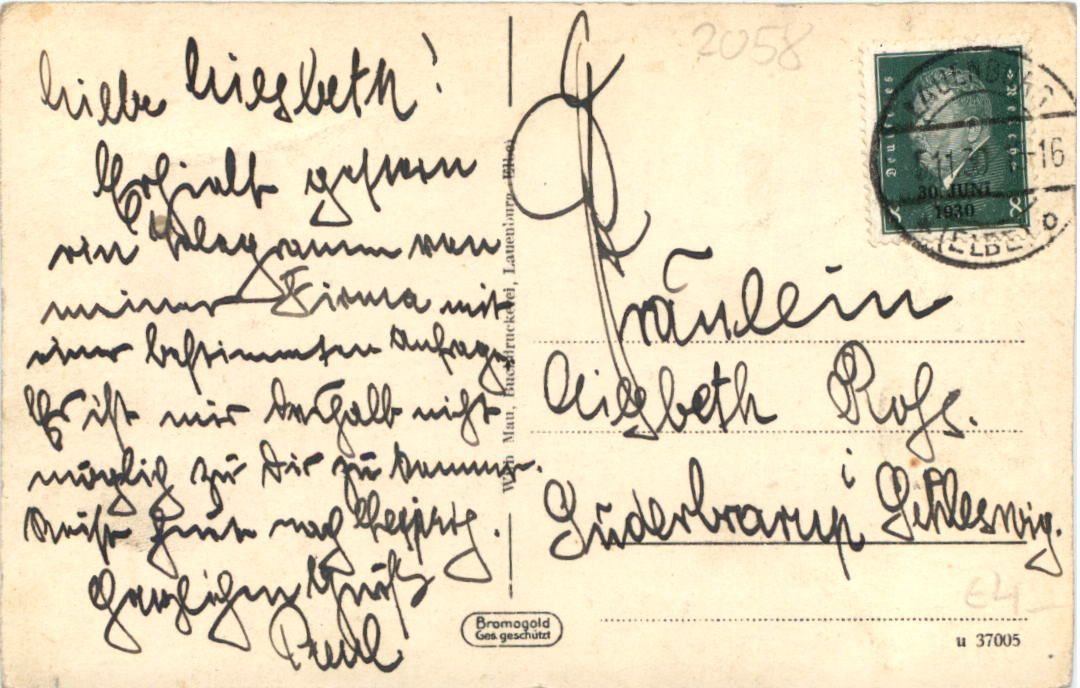 Liebe Liesbeth!
Erhielt gestern
ein Telegramm von
meiner Firma mit
einer bestimmten Anfrage.
Es ist mir deshalb nicht
möglich zu Dir zu kommen.
heute nach Leipzig.
Herzlichen Gruß
Paul
Wwe Mau, Buchdruckerei, Lauenburg (Elbe)
Bromogold
Ges. geschützt
2058
Deutsches Reich
30. JUNI
1930
LAUENBURG
5.11.30 -16
(ELBE)
Fräulein
Liesbeth
Süderbrarup i Schleswig.
E4
u 37005